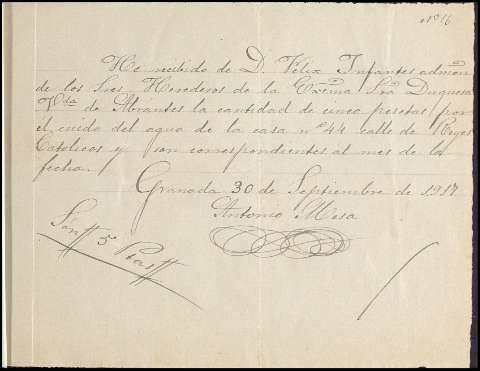 Nº 16
He recibido de D. Félix Infantes admón
de los Sres Herederos de la Excma Sra Duquesa
Vda de Abrantes la cantidad de cinco pesetas por
el cuido del agua de la casa nº 44 calle de Reyes
Catolicos y son correspondientes al mes de la
fecha.
Granada 30 de Septiembre de 1917
Antonio Mesa
Son # 5 Ptas #